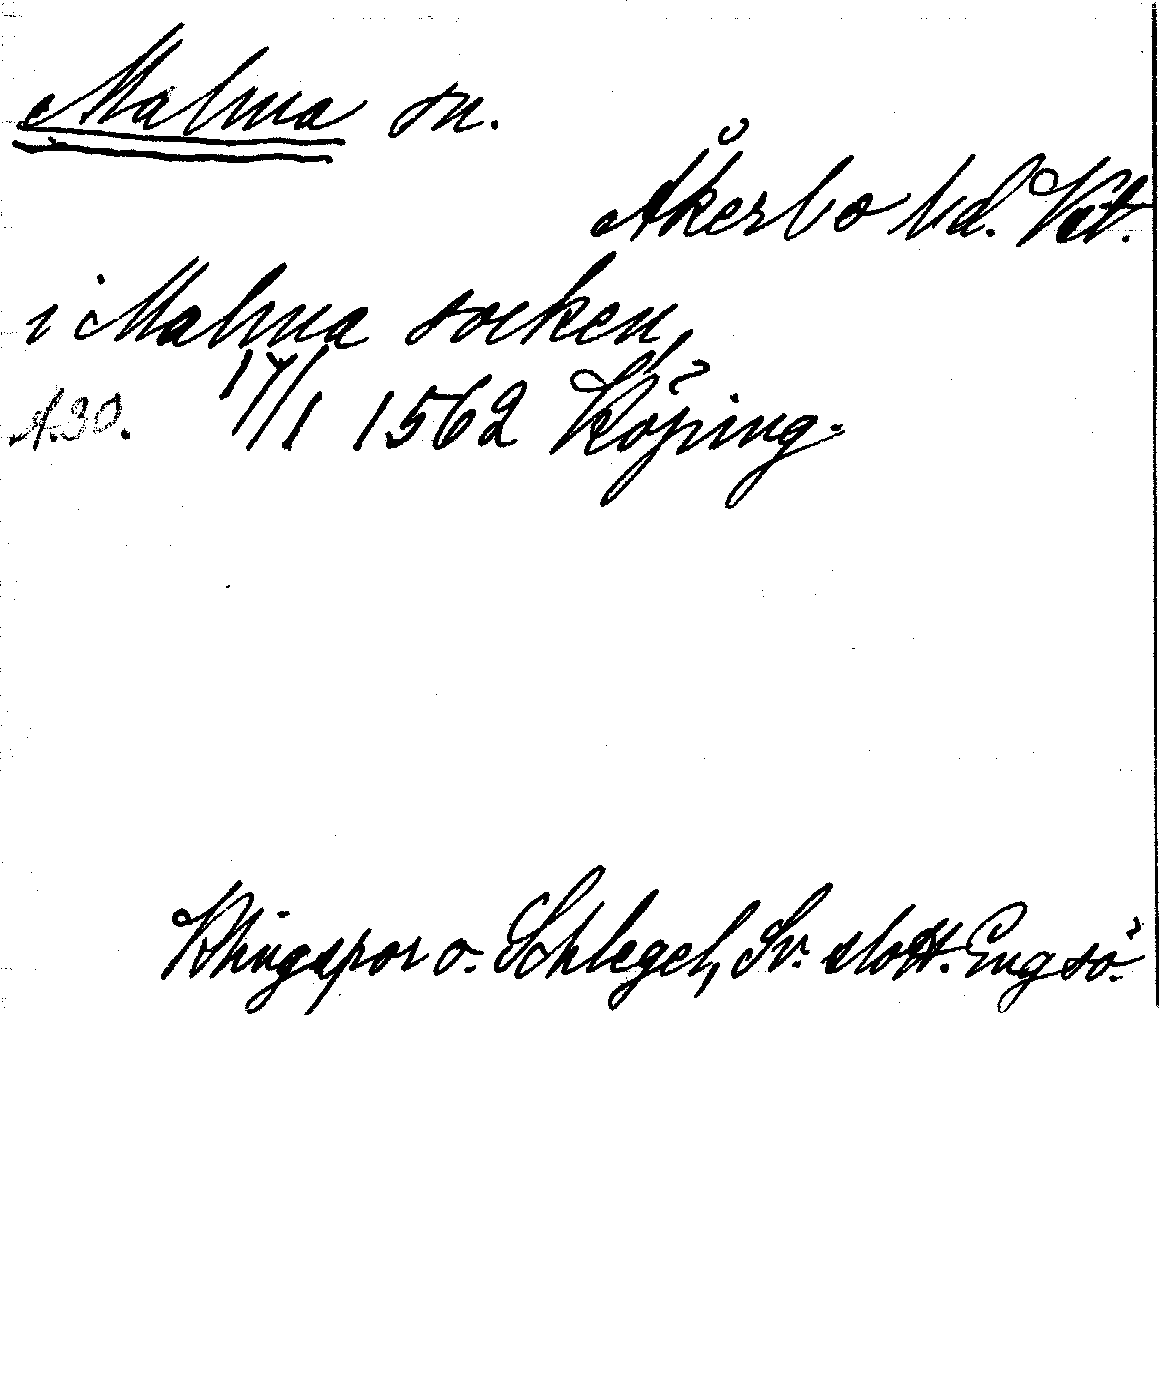 Malma sn.
Åkerbo hd. Vstm.
i Malma socken
A.30. 17/1 1562 Köping.
Klingspor o. Schlegel, Sv. slott. Engsö.